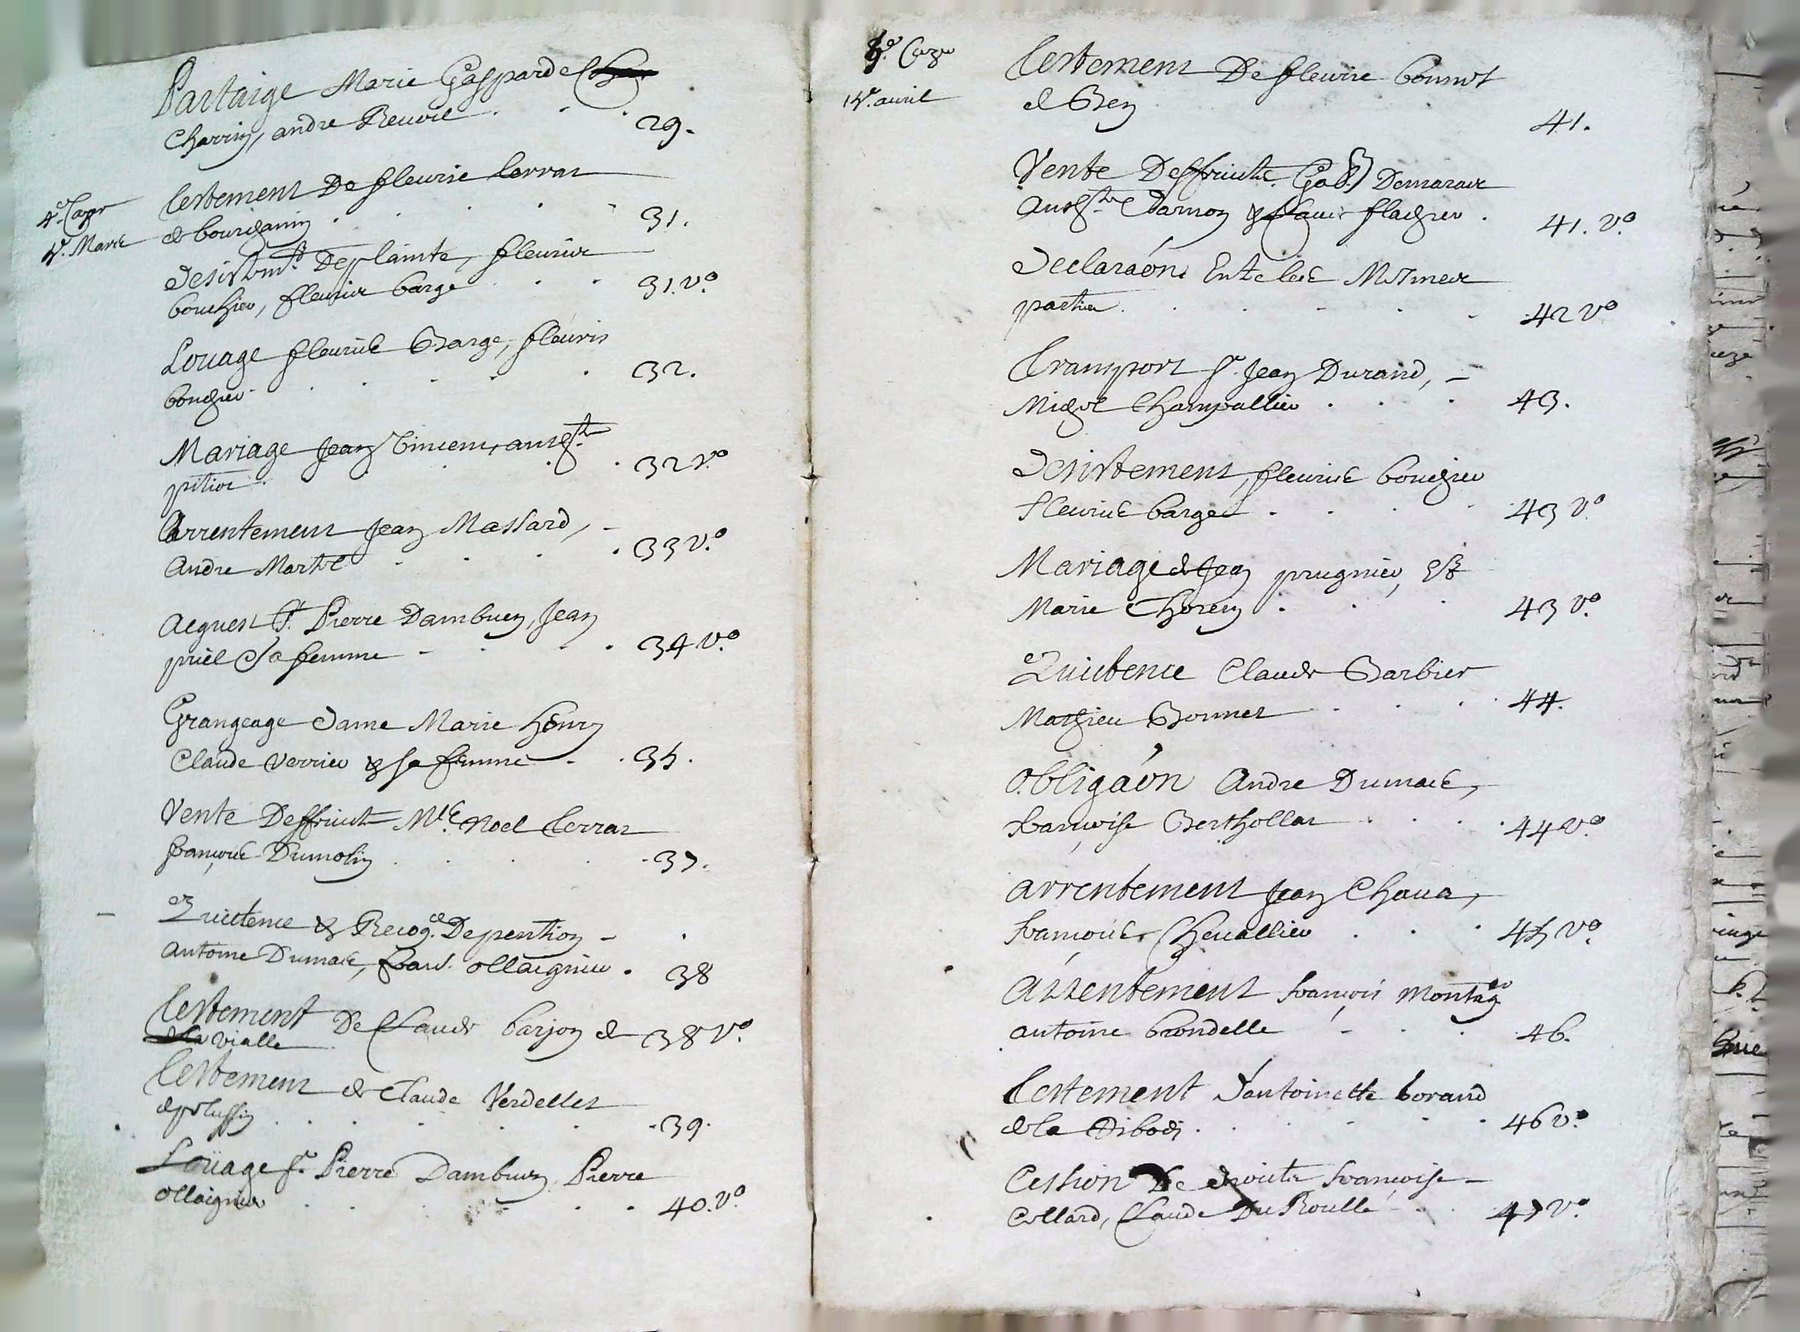 Partaige Marie Gasparde
Charrin, andre Reuoil . . . 29.
testement De fleurie terras
de bourdanin . . . 31.
4e. Cayer
Desistmt. De plainte, fleurie
4e. Mars
bouchier, fleurie barge . . . 31. vo.
Louage fleurie Barge, fleurie
bouchier . . . 32.
Mariage Jean Vincent, anthtte
pitiot . . . 32 vo.
Arrentement Jean Massard, -
Andre Martel . . . 33 vo.
Acquest Sr. Pierre Dambuen, Jean
priel & sa femme . . . 34 vo.
Grangeage Dame Marie henry
Claude verrier & sa femme . . 35.
Vente Deffruits Mte. Noel terras
francoise Dumolin . . . 37.
Quictence & Recogce. De pention -
antoine Dumas, ollaignier . 38
testement De Claude barjon de 38 vo.
la vialle
testement de Claude Verdellet
de pelussin . . . 39.
Louage Sr. Pierre Dambuen Pierre
ollaignier . . . 40. vo.
testement De fleurie bonnot
avril
de Bey . . . 41.
Vente Deffruits
& Claude flachier . 41. vo.
Declaraon
42 vo
transport Sr. Jean Durand, -
Michel Champallier . . . 43.
Desistement, fleurie bouchier
fleurie barge . . . 43 vo.
Mariage de Jean prugnier, &
Marie Chorein . . . 43 vo.
Quictence Claude Barbier
Mathieu Bonnet . . . 44.
obligaon andre Dumas,
francoise Berthollat . . . 44 vo.
arrentement Jean Chaua,
francoise Cheuallier . . . 45 vo.
arrentement francois montagnier
antoine brondelle . . . 46.
testement D'antoinette borand
de la Ribodi . . . 46 vo.
Cession De droits francoise -
Collard, Claude Du Roulle . . 47 vo.